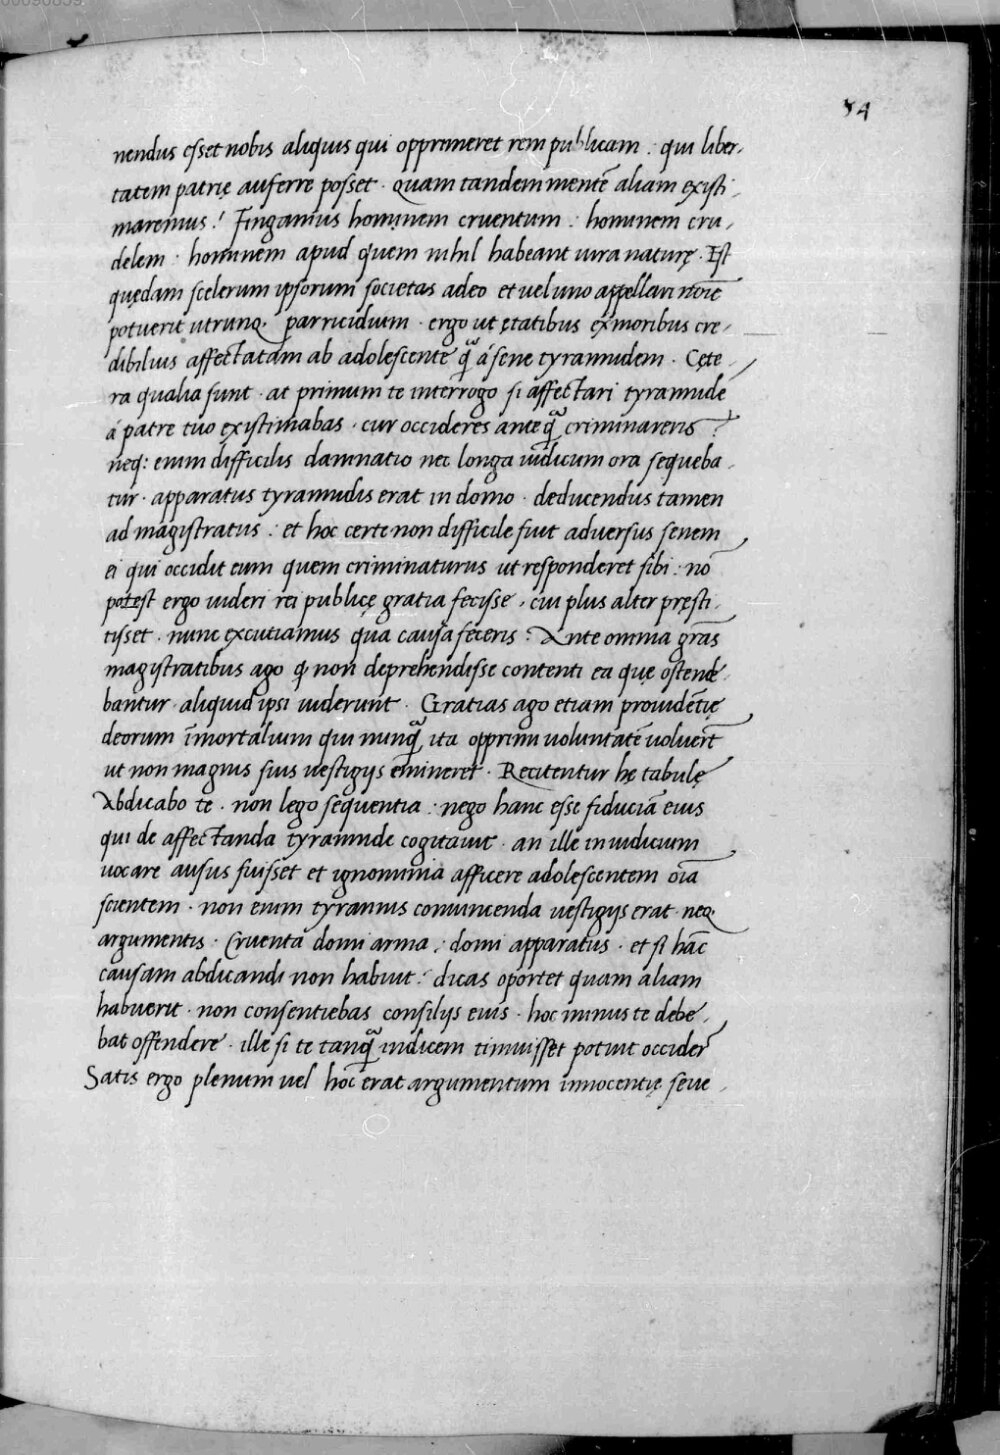 54
nendus esset nobis aliquis qui opprimeret rem publicam : qui liber-
tatem patrię auferre posset · quam tandem mentē aliam existi-
maremus! Fingamus hominem cruentum : hominem cru-
delem · hominem apud quem nihil habeant iura naturę · Est
quędam scelerum ipsorum societas adeo et vel uno appellari noīe
potuerit utrunq; parricidium · ergo ut ętatibus ex moribus cre-
dibilius affectatam ab adolescente q̃ á sene tyrannidem · Cęte-
ra qualia sunt · at primum te interrogo si affectari tyrannidē
á patre tuo existimabas · cur occideres anteq̃ criminareris ?
neq; enim difficilis damnatio nec longa iudicum ora sequeba-
tur · apparatus tyrannidis erat in domo · deducendus tamen
ad magistratus : et hoc certe non difficile fuit adversus senem
ei qui occidit eum quem criminaturus ut responderet sibi : nō
potest ergo uideri rei publicę gratia fecisse, cui plus alter pręsti-
tisset · nunc excutiamus qua causa feceris : Ante omnia gr̄as
magistratibus ago q̄ non deprehendisse contenti ea quę ostende-
bantur · aliquid ipsi uiderunt · Gratias ago etiam prouidētię
deorum īmortalium qui nunq̃ ita opprimi uoluntatē uoluer̄t
ut non magnis suis uestigijs emineret · Recitentur hę tabulę
Abdicabo te · non lego sequentia : nego hanc esse fiduciā eius
qui de affectanda tyrannide cogitauit · an ille in iudicium
uocare ausus fuisset et ignominia afficere adolescentem oīa
scientem · non enim tyrannis conuincenda uestigijs erat neq;
argumentis · Cruenta domi arma, domi apparatus · et si hāc
causam abdicandi non habuit : dicas oportet quam aliam
habuerit · non consentiebas consilijs eius · hoc minus te debe-
bat offendere · ille si te tanq̃ iudicem timuisset potuit occider̄
Satis ergo plenum uel hoc erat argumentum innocentię seue-